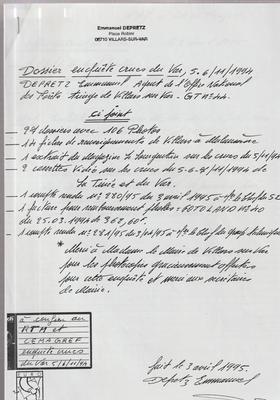 Emmanuel DEPRETZ
Place Robini
06710 VILLARS-SUR-VAR
Dossier enquête crues du Var, 5.6/11/1994
DEPRETZ Emmanuel Agent de l'Office National
des Forêts Triage de Villars sur Var - GT N°44.
ci joint
dossiers avec 106 Photos
fiches de renseignements de Villars à Malaussène
1 extrait du Magazine sur les crues du 5/11/94
2 cassettes Vidéo sur les crues du 5.6/11/1994 de
La Tinée et du Var.
1 compte rendu n° 280/95 du 3 avril 1995
1 facture pour remboursement photos = FOTOLAND N° 40
du 25.03.1995 de 362,60F.
1 compte rendu n° 281/95 du
* Merci à Madame le Maire de Villars sur Var
pour les photocopies gracieusement offertes
pour cette enquête et merci aux secrétaires
de Mairie.
à
RTM et
CEMAGREF
enquête crues
du Var 5/6/11/94
fait le 3 avril 1995.
Depretz Emmanuel